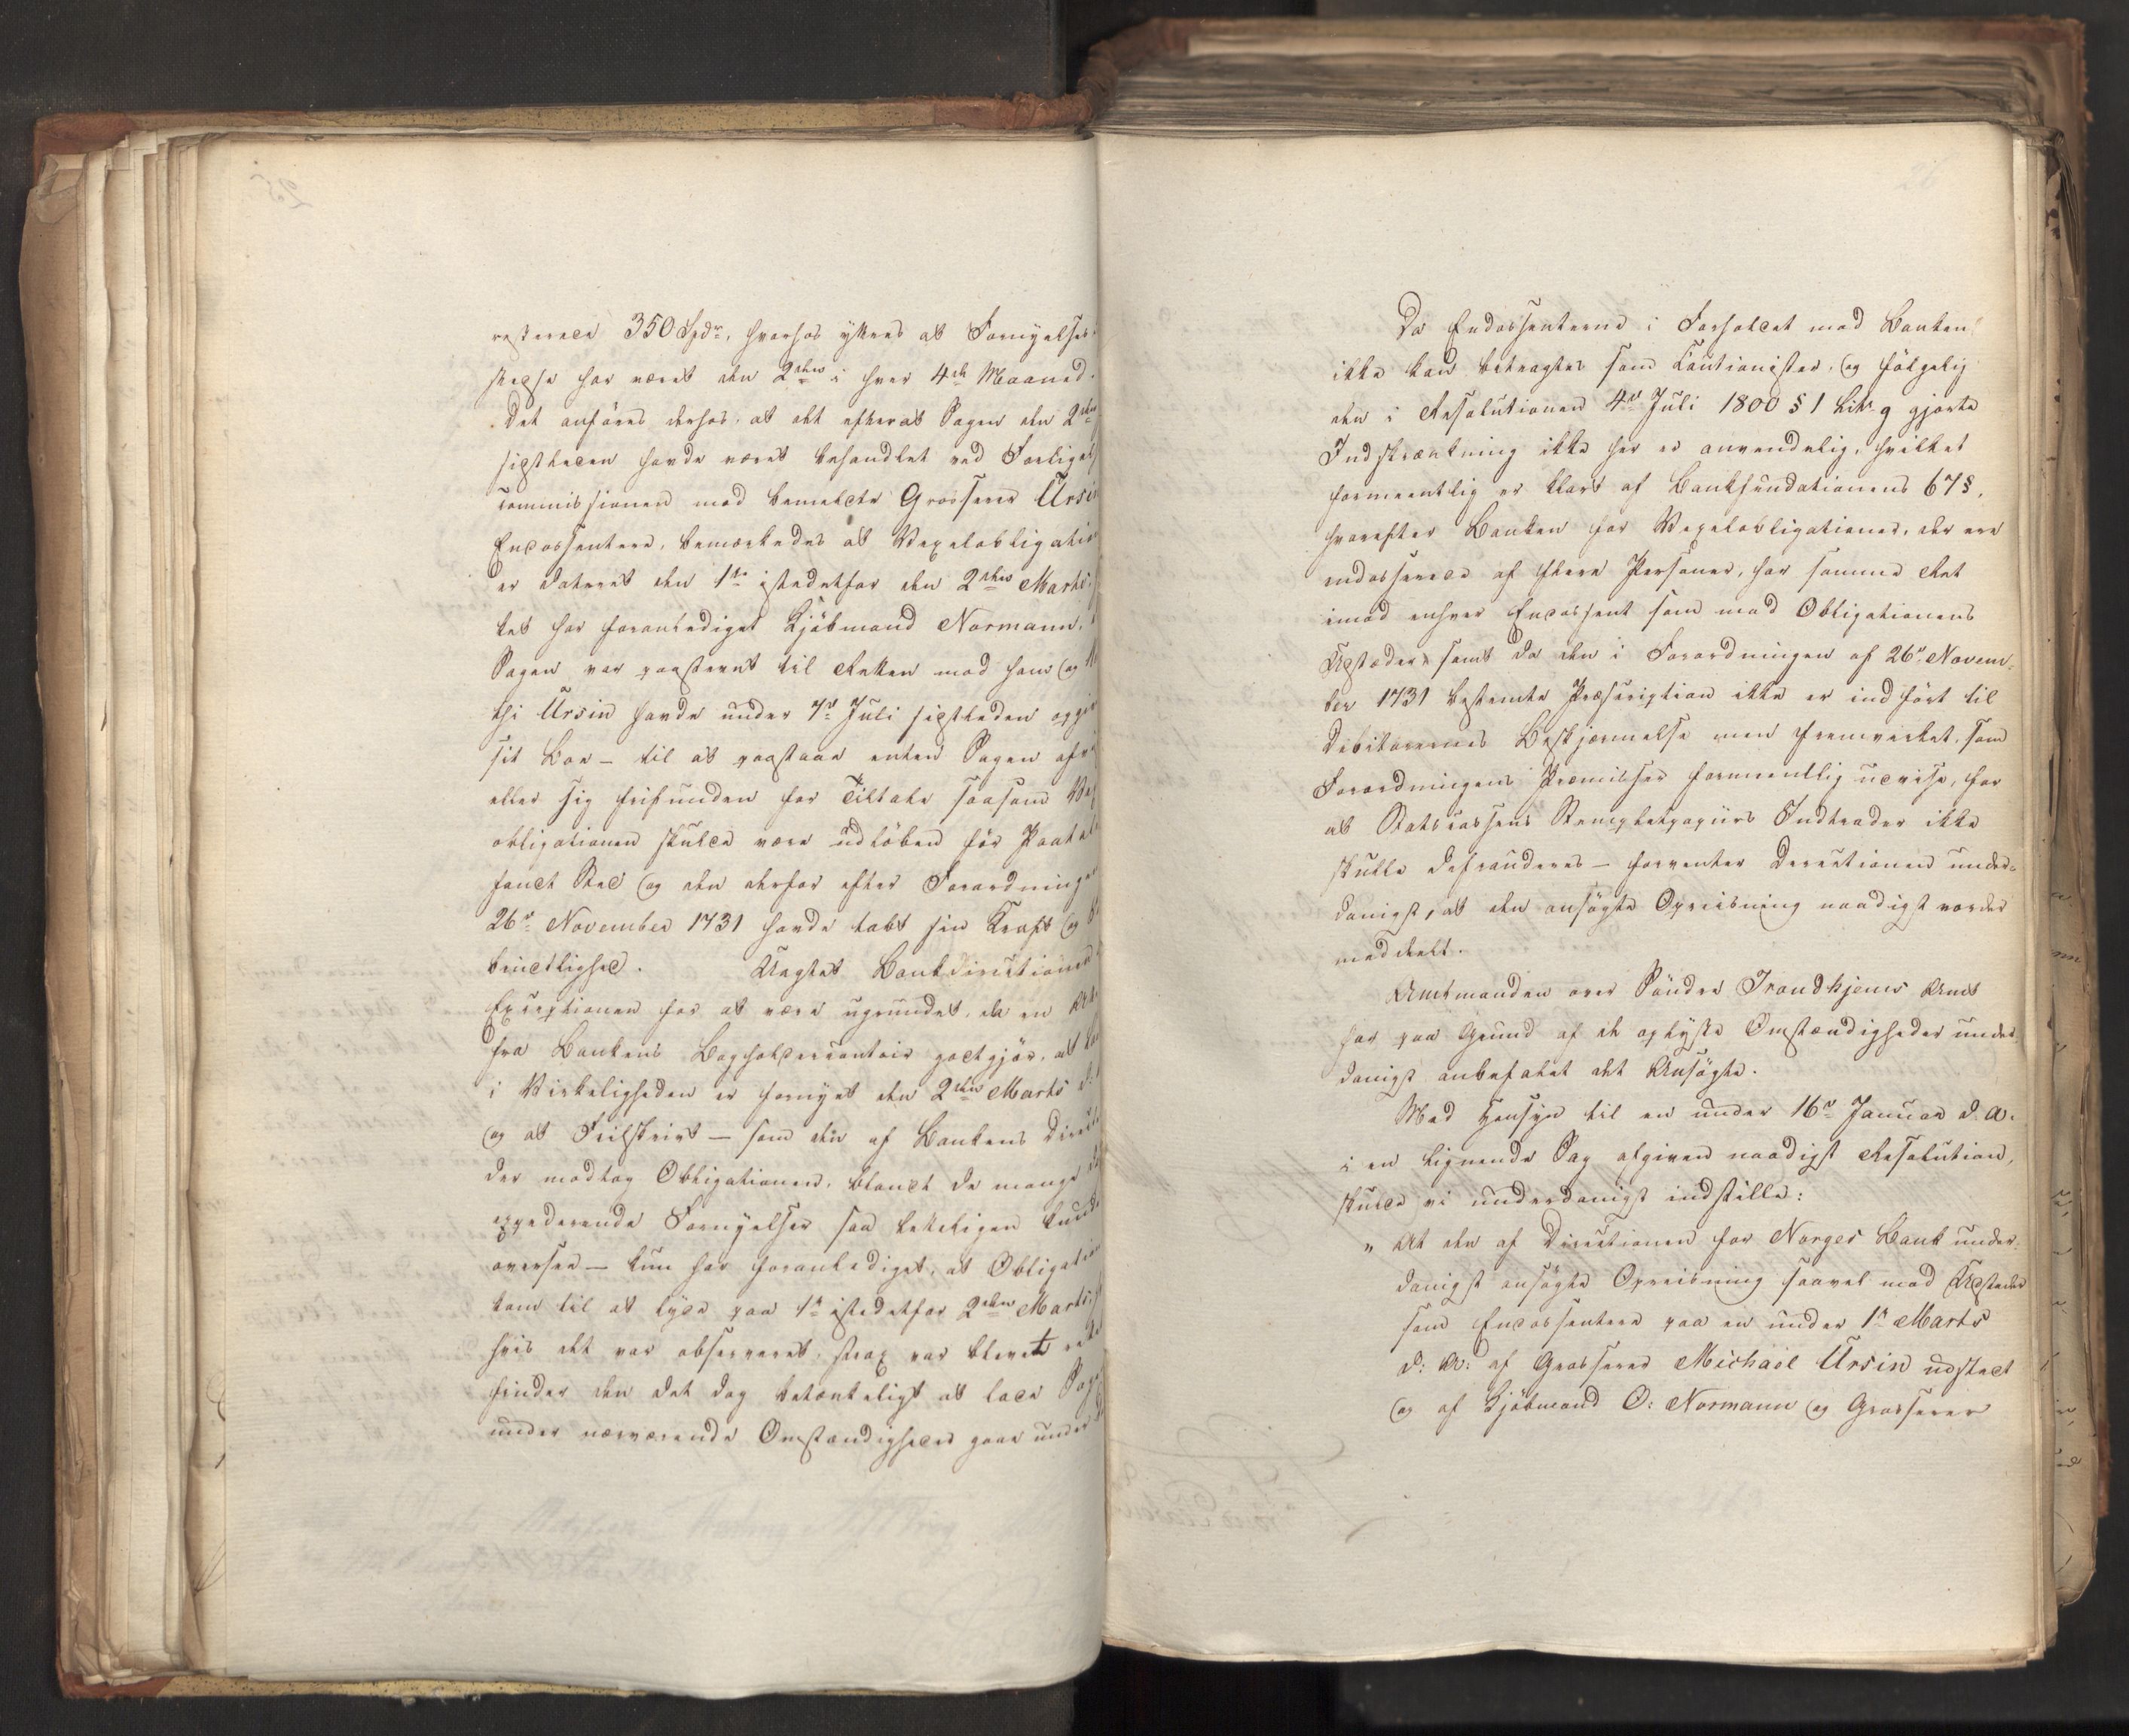 resterede 350 Spdr, hvorhos yttres at Fornyelses-
stedse har været den 2den i hver 4de Maaned.
Det anföres derhos, at det efterat Sagen den 2den
sidstleden havde været behandlet ved Forligels
commissionen mod bemeldte Grosserer Ursin
Endossentere, bemærkedes at Vexelobligatio
er dateret den 1ste istedetfor den 2den Marts
ket har foranlediget Kjöbmand Normann,
Sagen var paastevnt til Retten mod ham og
thi Ursin havde under 7de Juli sidstleden opgi
sit Boe – til at paastaae enten Sagen afvi
eller sig frifunden for Tiltale saasom Vex
obligationen skulde være udlöben för Paatale
fandt Sted og den derfor efter Forordningen
26de November 1731 havde tabt sin Kraft og
bindtlighed. Uagtet Bankdirectionen
Exceptionen for at være ugrundet, da en Att
fra Bankens Bogholdercontoir godtgjör, at
i Virkeligheden er fornyet den 2den Marts d:
og at Feilskrivt – som den af Bankens Directi
der modtog Obligationen, blandt de mange
expederende Fornyelser saa letteligen kunde
oversee – kun har foranlediget, at Obligation
kom til at lyde paa 1ste istedetfor 2den Marts,
hvis det var observeret, strax var blevet rette
finder den det dog betænkeligt at lade Sage
under nærværende Omstændigheder gaae under
Da Endossenterne i Forholdet mod Banken
ikke kan betragtes som Cautionister, og fölgelig
den i Resolutionen 4de Juli 1800 § 1 Litr. g gjorte
Indskrænkning ikke her er anvendelig, hvilket
formeentlig er klart af Bankfundationens 67 §,
hvorefter Banken for Vexelobligationer, der ere
endosserede af flere Personer, har samme Ret
imod enhver Endossent som mod Obligationens
Udsteder, samt da den i Forordningen af 26de Novem-
ber 1731 bestemte Præscription ikke er indfört til
Debitorernes Beskjærmelse men fremvirket, som
Forordningens Præmisser formeentlig udvise, for
at Statscassens Stempletpapiirs Indtræder ikke
skulle defrauderes – forventer Directionen under-
danigst, at den ansögte Opreisning naadigst vorder
meddeelt.
Amtmanden over Söndre Trondhjems Amt
har paa Grund af de oplyste Omstændigheder under-
danigst anbefalet det Ansögte.
Med Hensyn til en under 16de Januar d. A.
i en lignende Sag afgiven naadigst Resolution,
skulde vi underdanigst indstille:
„ At den af Directionen for Norges Bank under-
danigst ansögte Opreisning saavel mod Udsteder
som Endossentere paa en under 1ste Marts
d: A: af Grosserer Michael Ursin udstedt
og af Kjöbmand O: Normann og Grosserer